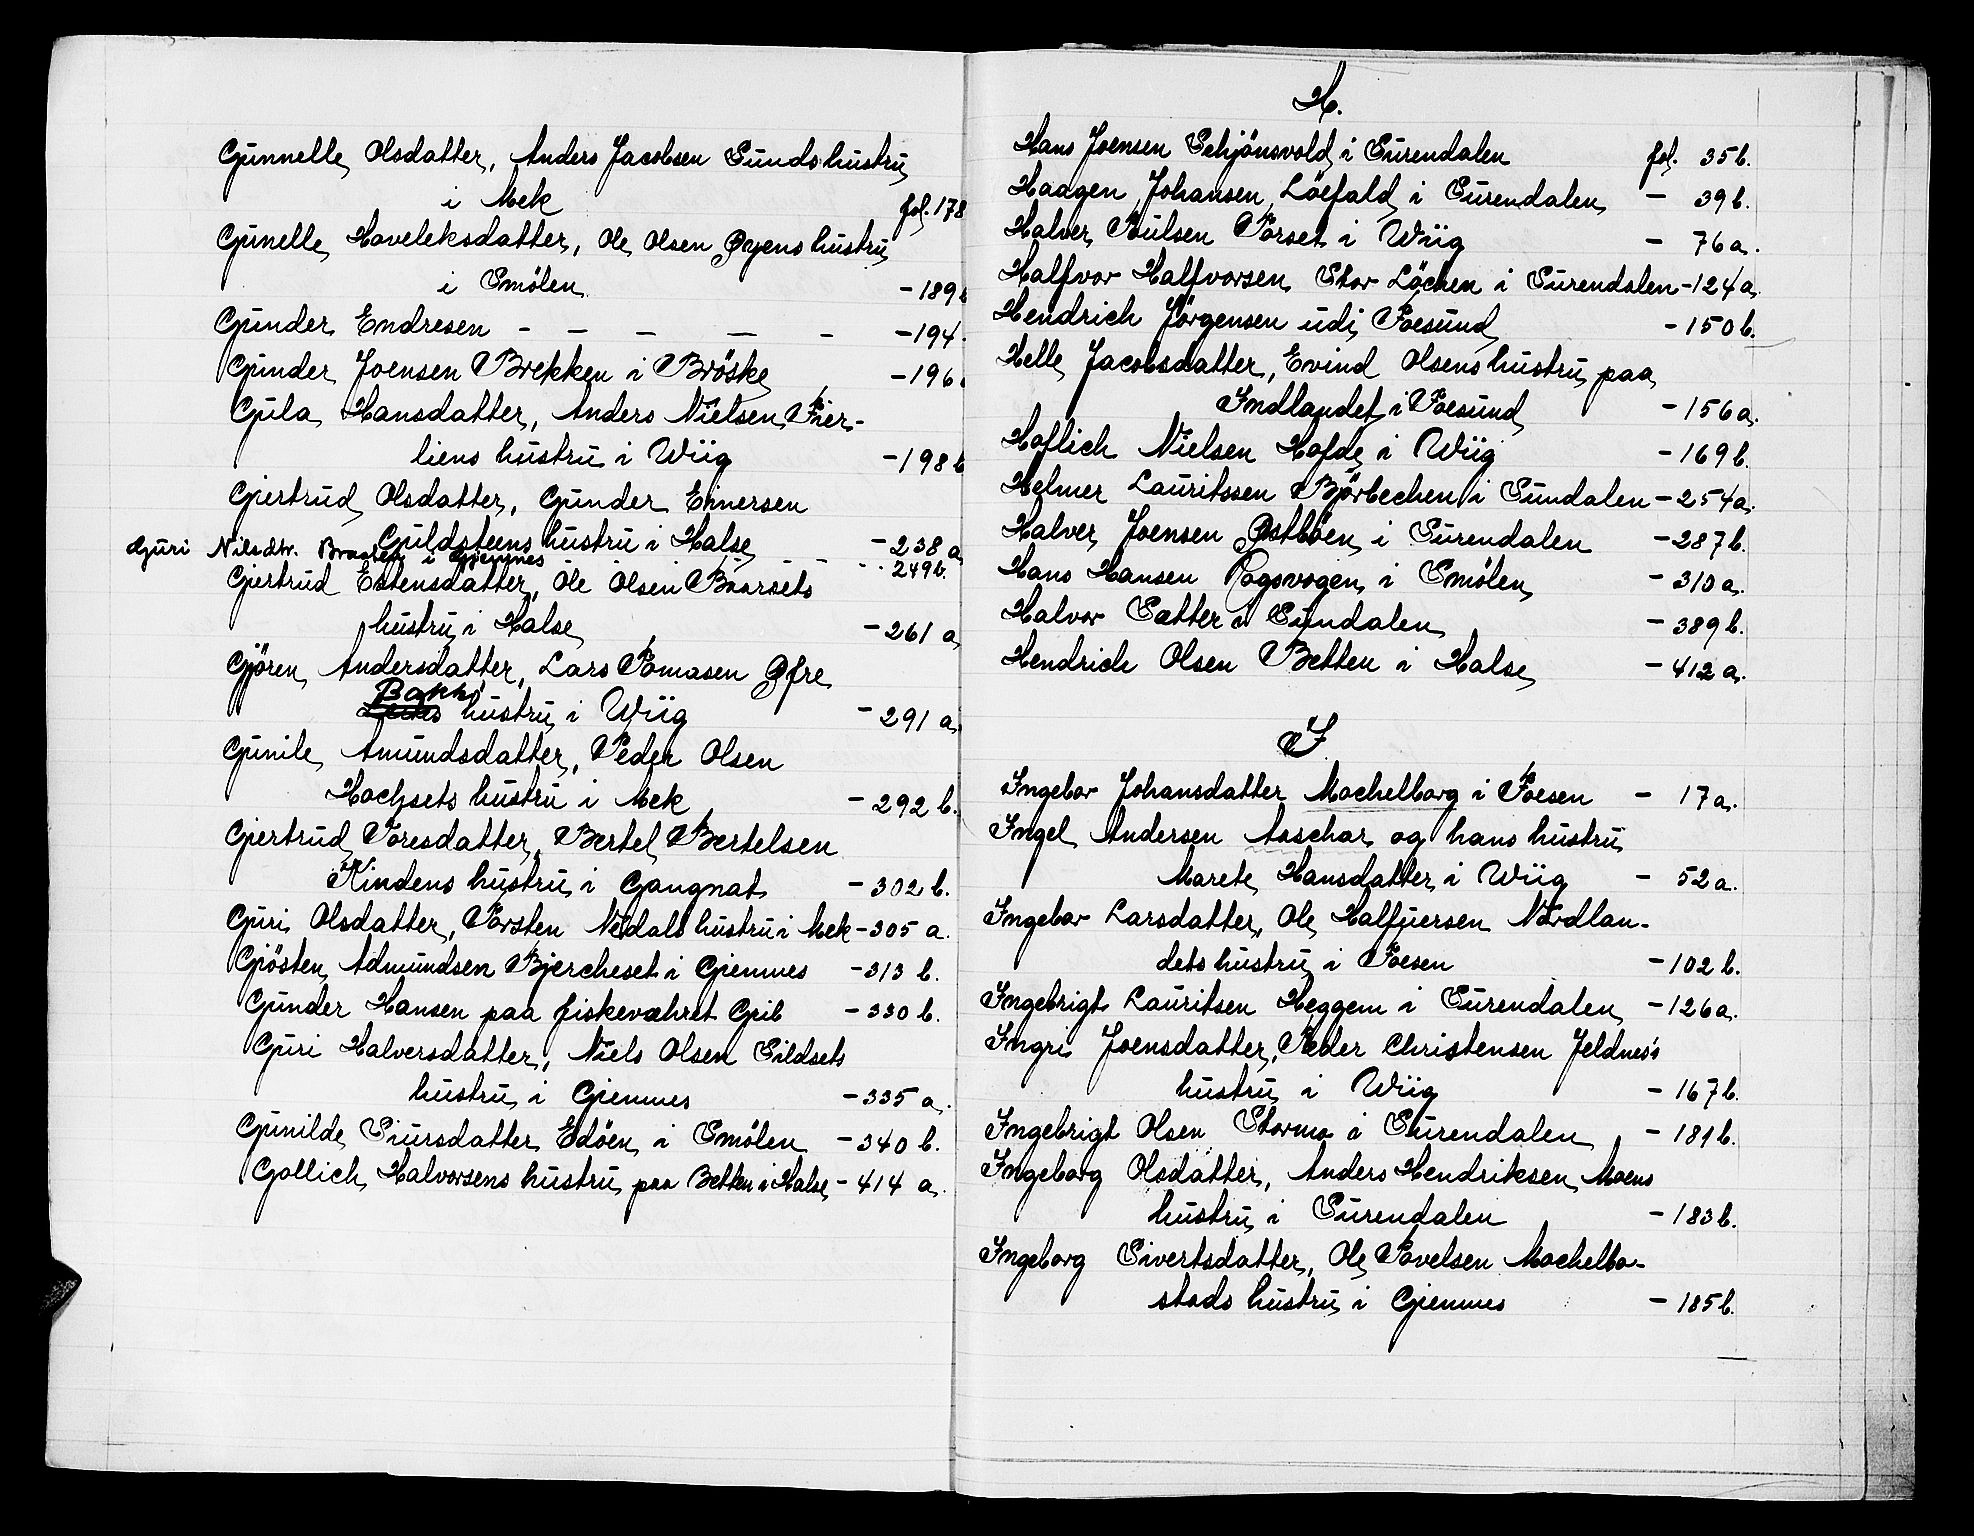 Gunnelle Olsdatter, Anders Jacobsen Sunds hustru
i Mek fol. 178
Gunelle Haveleksdatter, Ole Olsen Øyens hustru
i Smölen - 189 b
Gunder Endresen - - - - - - 194
Gunder Joensen Brekken i Bröske - 196
Gula Hansdatter, Anders Nielsen Fier-
liens hustru i Wiig - 198 b
Giertrud Olsdatter, Gunder Einersen
Guldsteens hustru i Halse - 238 a
Guri Nilsdtr. i Gjemnes - - 249 b.
Gjertrud Estensdatter, Ole Olsen Baarsets
hustru i Halse - 261 a
Gjören Andersdatter, Lars Tomasen Øfre
Bakks hustru i Wiig - 291 a.
Gunile Amundsdatter, Peder Olsen
Hochsets hustru i Mek - 292 b.
Gjertrud Toresdatter, Bertel Bertelsen
Kindens hustru i Gangnat - 302 b.
Guri Olsdatter, Torsten Nedals hustru i Mek - 305 a.
Gjösten Admundsen Bjercheset i Giemnes - 313 b.
Gunder Hansen paa fiskeværet Grib - 330 b.
Guri Halversdatter, Niels Olsen Sildsets
hustru i Giemnes - 335 a.
Gunilde Siursdatter Edöen i Smölen - 340 b.
Gollich Halvorsens hustru paa Betten i Halse - 414 a.
H.
Hans Joensen Schjönsvold i Surendalen fol. 35 b.
Haagen Johansen Löefald i Surendalen - 39 b.
Halver Poulsen Torset i Wiig - 76 a.
Halfvor Halfvorsen Stor Löchen i Surendalen - 124 a.
Hendrich Jörgensen udi Foesund - 150 b.
Helle Jacobsdatter, Evind Olsens hustru paa
Indlandet i Foesund - 156 a.
Hoflich Nielsen Hofde i Wiig - 169 b.
Helmer Lauritssen Björbechen i Sundalen - 254 a.
Halver Joensen Østböen i Surendalen - 287 b.
Hans Hansen Rogsvogen i Smölen - 310 a.
Halvor Sætter i Sundalen - 389 b.
Hendrich Olsen Betten i Halse - 412 a.
I
Ingebor Johansdatter Mochelborg i Foesen - 17 a.
Ingel Andersen Aaschar og hans hustru
Marete Hansdatter i Wiig - 52 a.
Ingebor Larsdatter, Ole Halfuersen Nordlan-
dets hustru i Foesen - 102 b.
Ingebrigt Lauritsen Heggem i Surendalen - 126 a.
Ingri Joensdatter, Peder Christensen Jeldnes's
hustru i Wiig - 167 b.
Ingebrigt Olsen Stormo i Surendalen - 181 b.
Ingeborg Olsdatter, Anders Hendriksen Moens
hustru i Surendalen - 183 b.
Ingeborg Sivertsdatter, Ole Povelsen Mochelbo-
stads hustru i Giemnes - 185 b.